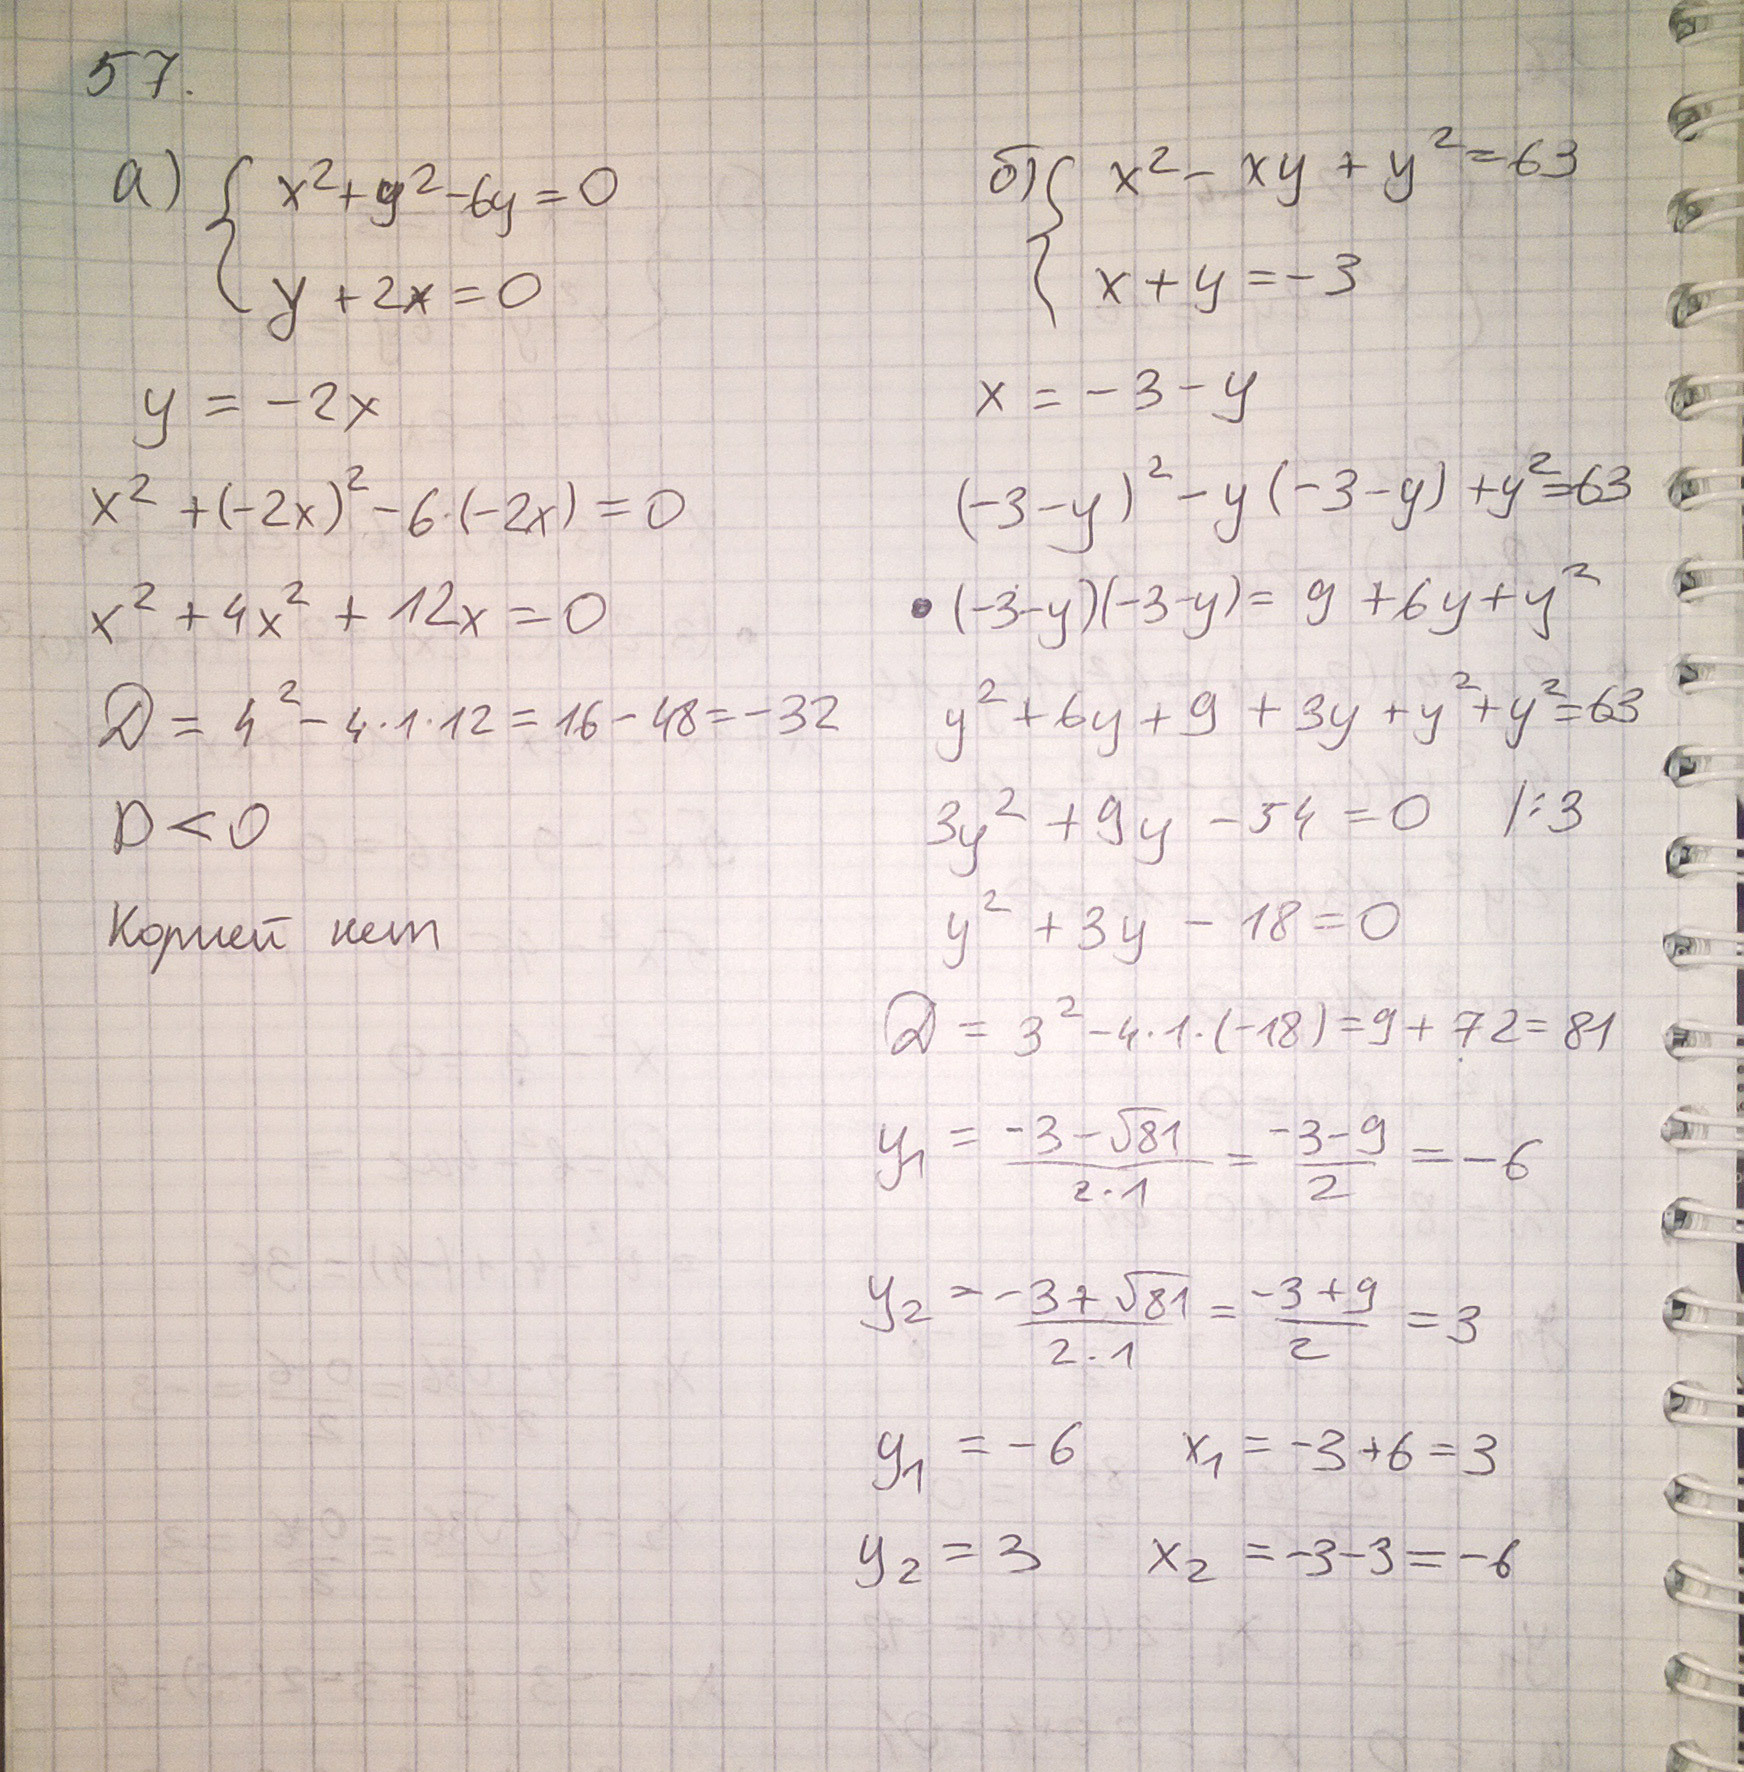 57.
а) { x² + y² - 6y = 0
y + 2x = 0
y = -2x
x² + (-2x)² - 6·(-2x) = 0
x² + 4x² + 12x = 0
D = 4² - 4·1·12 = 16 - 48 = -32
D < 0
Корней нет
б) { x² - xy + y² = 63
x + y = -3
x = -3 - y
(-3-y)² - y(-3-y) + y² = 63
• (-3-y)(-3-y) = 9 + 6y + y²
y² + 6y + 9 + 3y + y² + y² = 63
3y² + 9y - 54 = 0 /:3
y² + 3y - 18 = 0
D = 3² - 4·1·(-18) = 9 + 72 = 81
y₁ = (-3 - √81)/(2·1) = (-3-9)/2 = -6
y₂ = (-3 + √81)/(2·1) = (-3+9)/2 = 3
y₁ = -6 x₁ = -3+6 = 3
y₂ = 3 x₂ = -3-3 = -6